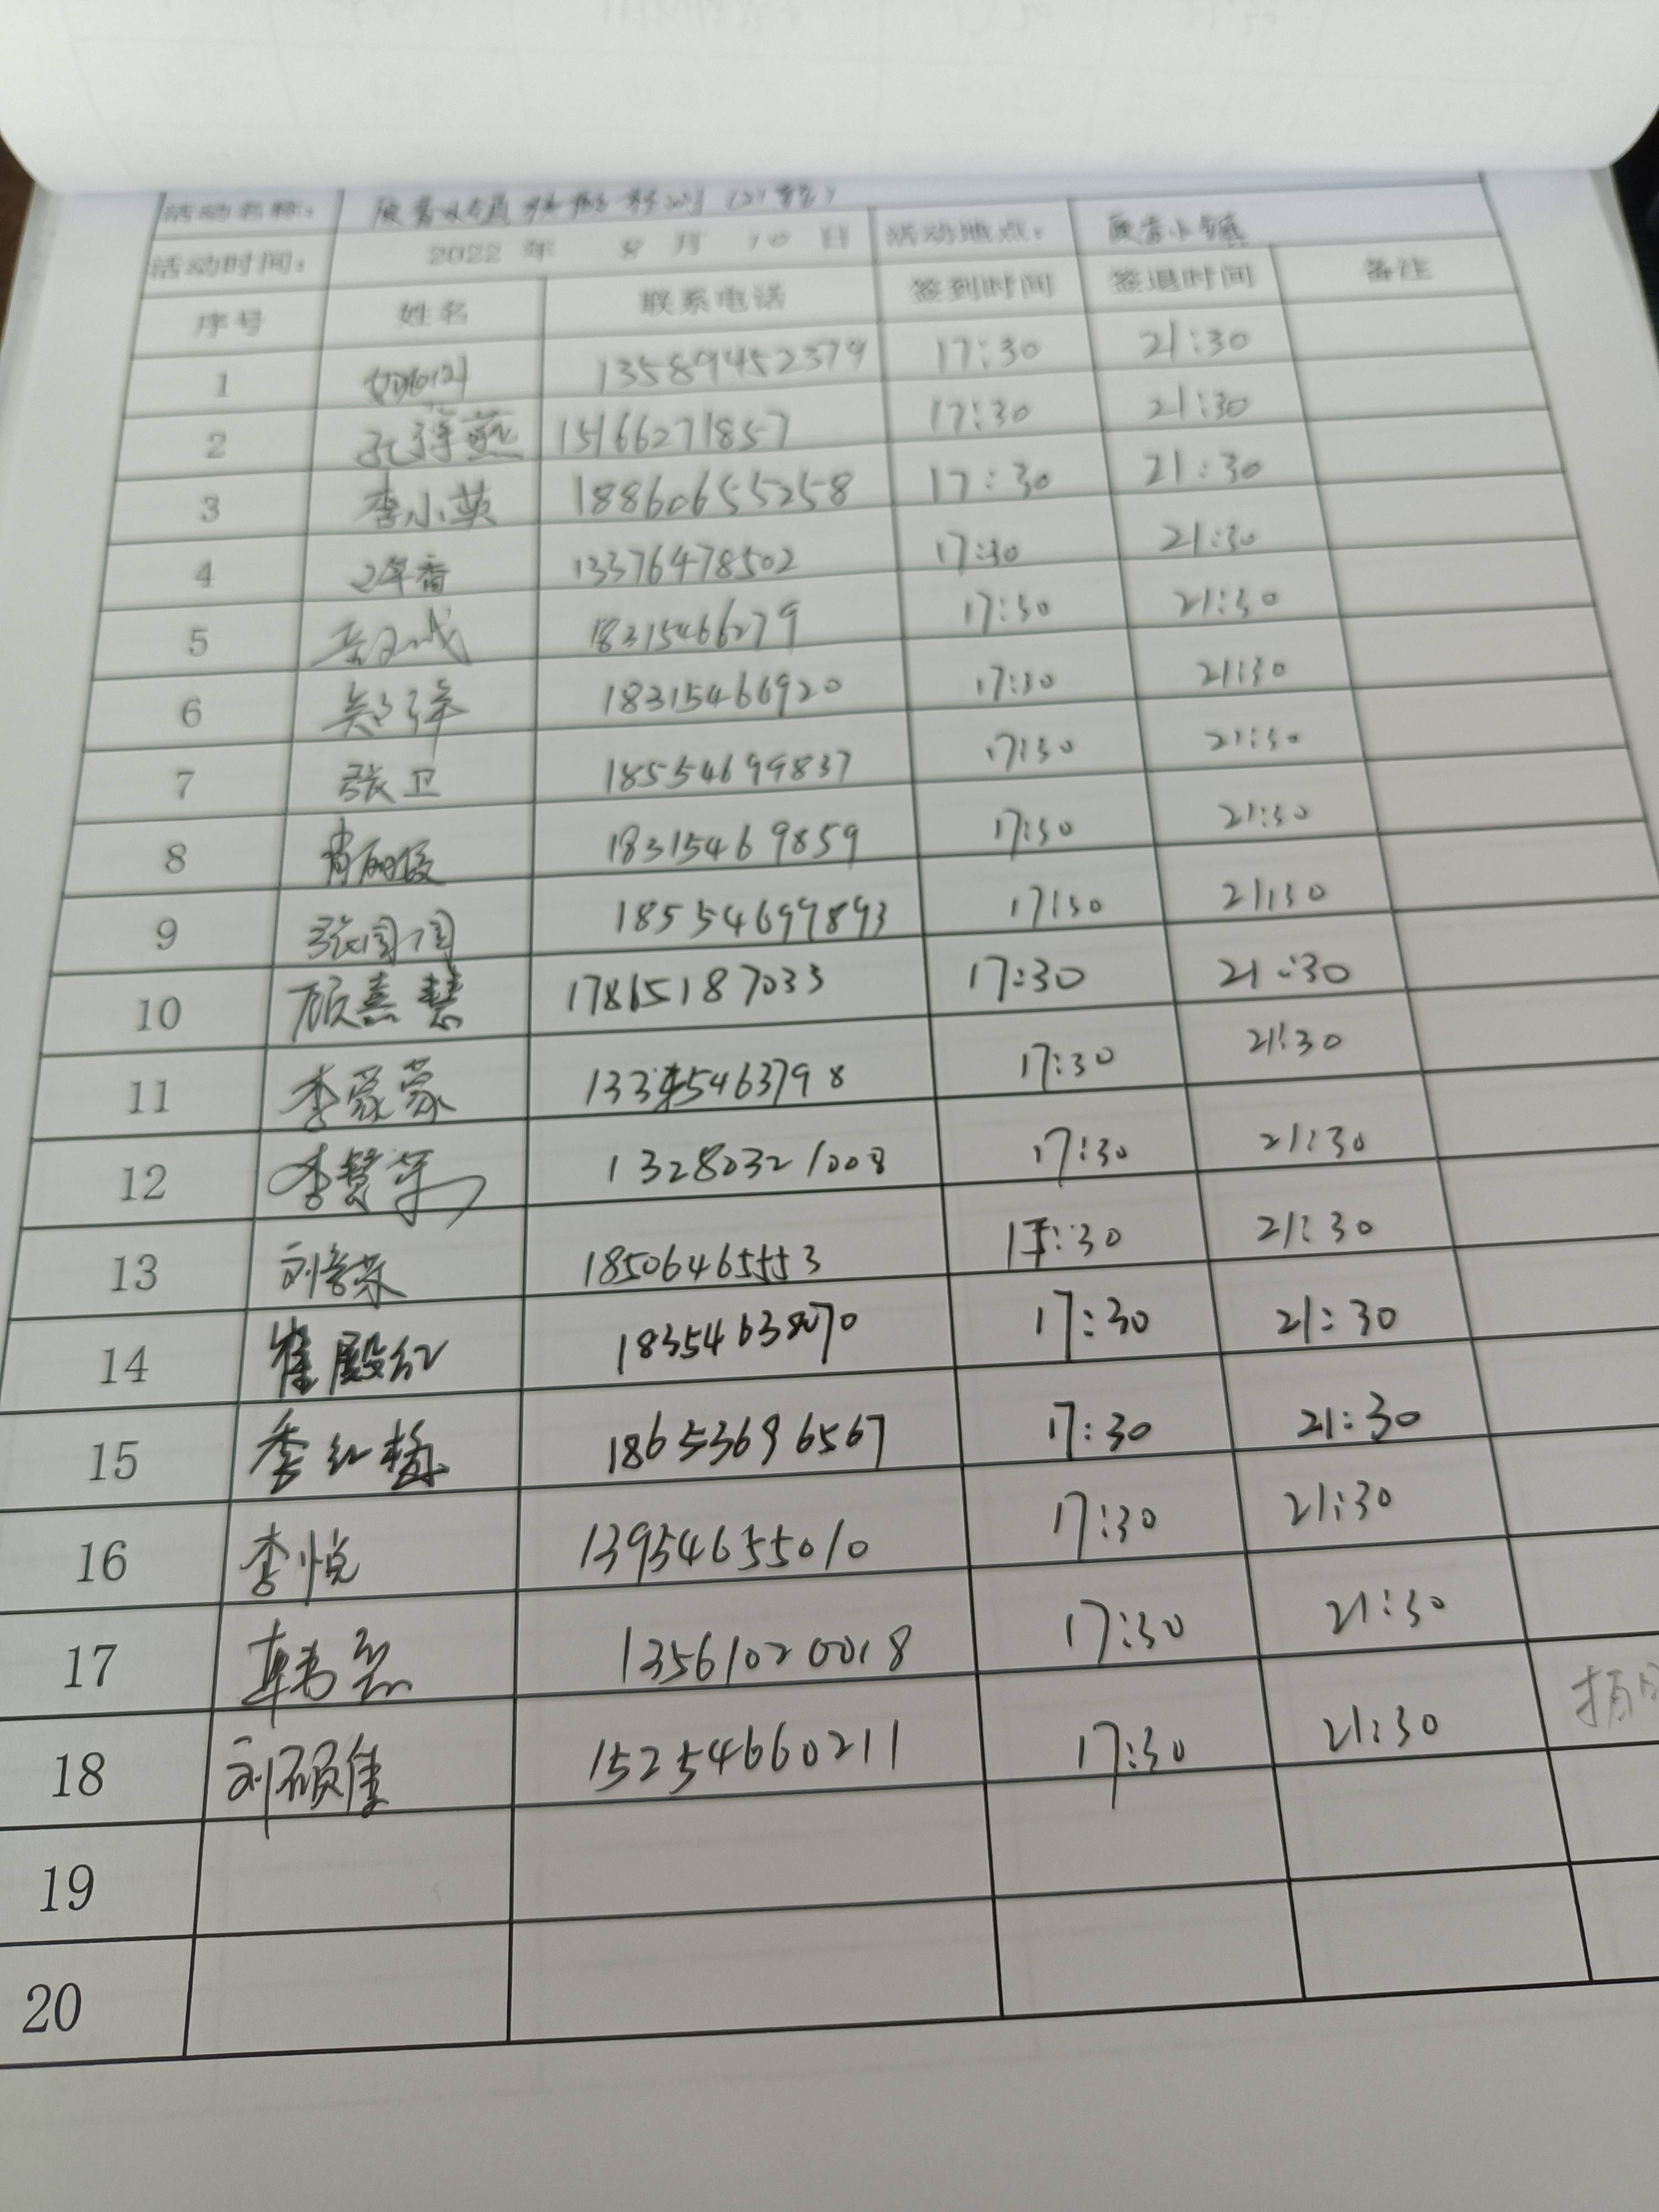 活动名称:
活动时间: 2022 年 8 月 10 日 活动地点: 小镇
序号 姓名 联系电话 签到时间 签退时间 备注
1 13589452379 17:30 21:30
2 15166271857 17:30 21:30
3 李小英 18860655258 17:30 21:30
4 13376478502 17:30 21:30
5 18315466279 17:30 21:30
6 18315466920 17:30 21:30
7 张卫 18554699837 17:30 21:30
8 18315469859 17:30 21:30
9 18554699893 17:30 21:30
10 顾熹慧 17865187033 17:30 21:30
11 李蒙蒙 17:30 21:30
12 13280321008 17:30 21:30
13 18506465553 17:30 21:30
14 崔殿红 17:30 21:30
15 季红梅 18653696567 17:30 21:30
16 李悦 13954655010 17:30 21:30
17 13561020018 17:30 21:30
18 刘硕佳 15254660211 17:30 21:30
19
20